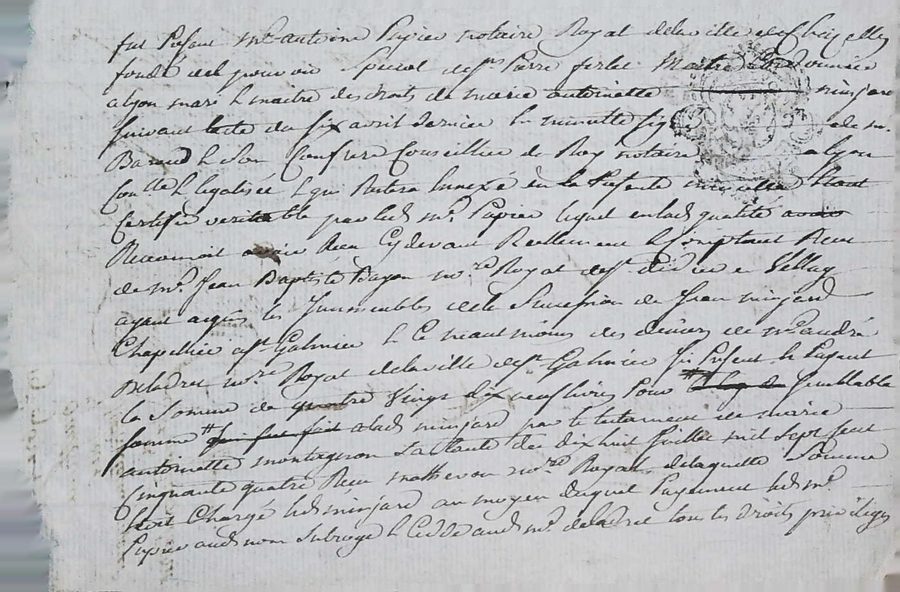 fut présent me antoine Papier notaire Royal de la ville de Chazelles
fondé de pouvoir Special de Sr Pierre ferlet Maitre
a lyon mari & maitre des droits de marie antoinette minjard
suivant lacte du six avril dernier la minute de me
Baroud & son Confrere Conseillier du Roy notaire a lyon
Conlle & legalisée & qui Restera annexé en la Presente minutte
Certifié veritable par led me Papier lequel en lad qualité avoir
Reconnoit avoir Reçu Cy devant Reellement & Comptant
de me Jean Baptiste Bayon nore Royal de St didier en Vellay
ayant acquis les Immeubles de la Succession de Jean minjard
Chapellier a St Galmier & Ce néantmoins des deniers de me andré
Deladret nore Royal de la ville de St Galmier Ici Présent & Payant
la Somme de quatre Vingt dix neuf livres Pour Semblable
somme a lad minjard par le testament de marie
antoinette montagnon Sa tante du dix huit Juillet mil Sept Cent
Cinquante quatre Reçu mathevon nore Royal de laquelle Somme
Chargé led minjard au moyen duquel Payement led me
Papier aud nom Subroge & Cedde aud me deladret tous les droits privileges